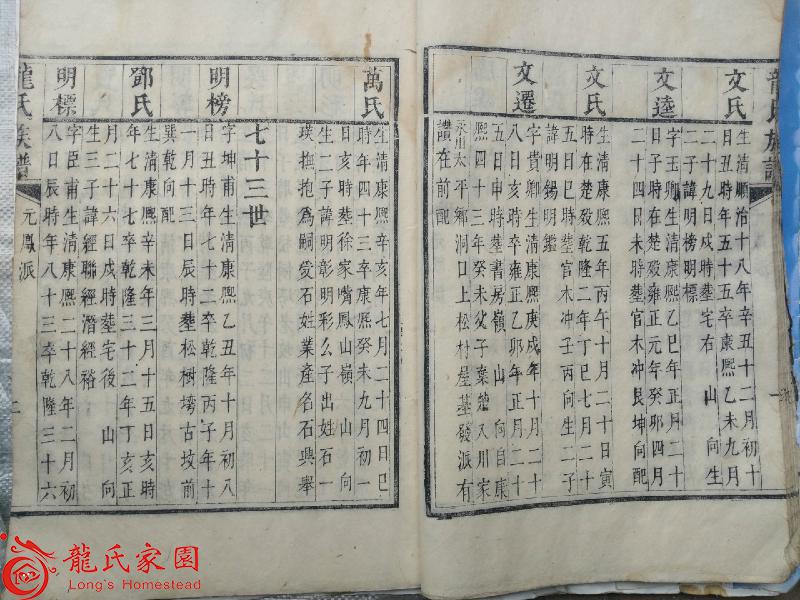 龍氏族譜
文氏
生清順治十八年辛丑十二月初十
日丑時年五十五卒康熙乙未九月
二十九日戌時塟宅右 山 向生
二子諱明榜明標
文逵
字玉卿生清康熙乙巳年正月二十
日子時在楚殁雍正元年癸卯四月
二十四日未時塟官木冲艮坤向配
文氏
生清康熙五年丙午十月二十日寅
時在楚殁乾隆二年丁巳七月二十
五日巳時塟官木冲子壬丙向生二子
諱明錫明鑑
文遷
字貴卿生清康熙庚戌年十月二十
八日亥時卒雍正乙卯年正月二十
五日申時塟書房嶺 山 向自康
熙四十三年癸未父子棄楚入川家
永川太平鄉洞口上松村屋基發派有
讃在前配
萬氏
生清康熙辛亥年七月二十四日巳
時年四十三卒康熙癸未九月初一
日亥時塟徐家嘴鳳山嶺 山 向
生二子諱明彰明彩么子出姓石一
璞撫抱爲嗣愛石姓業產名石興舉
七十三世
明榜
字坤甫生清康熙乙丑年十月初八
日丑時年七十二卒乾隆丙子年十
一月十三日辰時塟松樹塆古坟前
巽乾向配
鄧氏
生清康熙辛未年三月十五日亥時
年七十七卒乾隆三十二年丁亥正
月二十六日戌時塟宅後 山 向
生三子諱經聯經潛經裕
明標
字臣甫生清康熙二十八年二月初
八日辰時年八十三卒乾隆三十六
龍氏族譜
元鳳派
二
龍氏家園
Long's Homestead